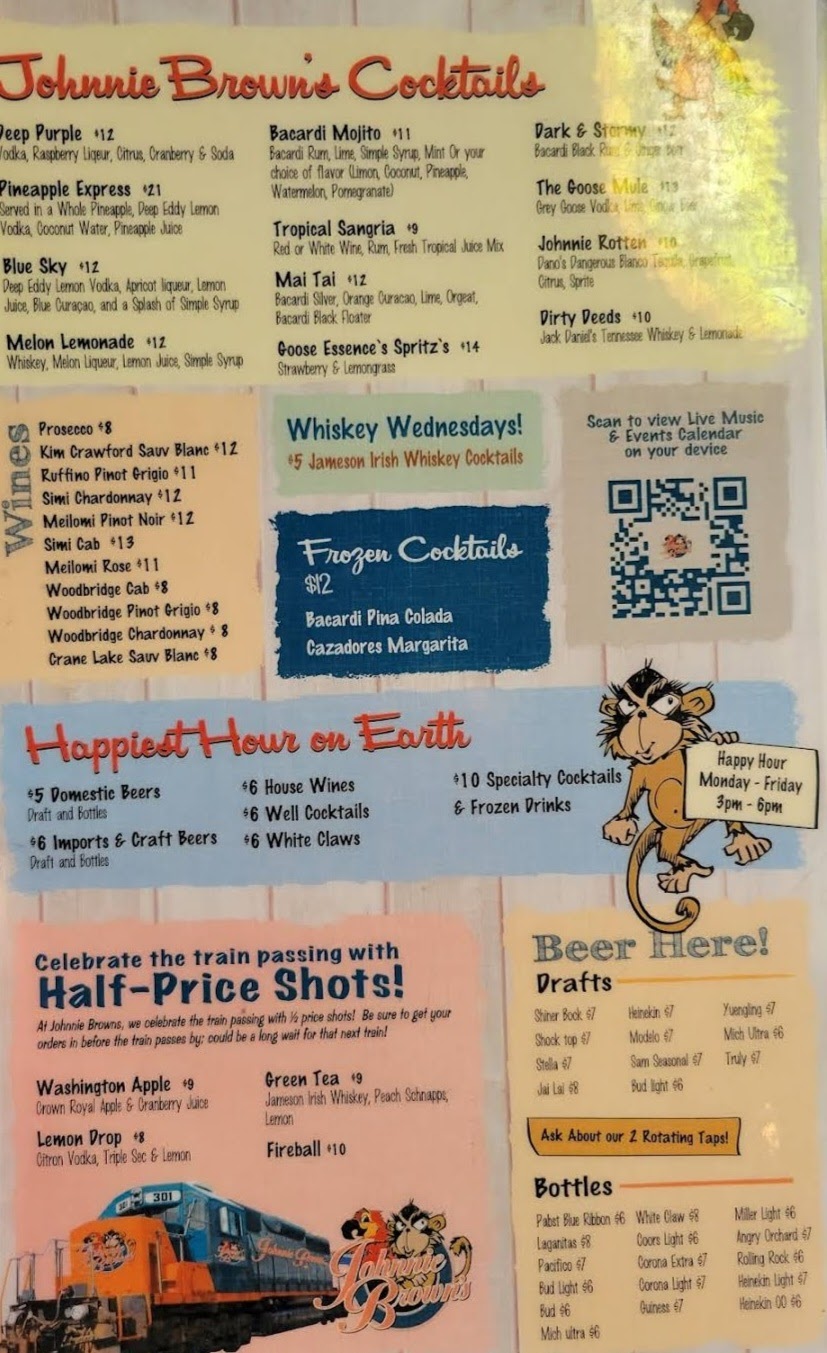 Johnnie Brown's Cocktails
Deep Purple $12
Vodka, Raspberry Liqeur, Citrus, Cranberry & Soda
Pineapple Express $21
Served in a Whole Pineapple, Deep Eddy Lemon
Vodka, Coconut Water, Pineapple Juice
Blue Sky $12
Deep Eddy Lemon Vodka, Apricot liqueur, Lemon
Juice, Blue Curaçao, and a Splash of Simple Syrup
Melon Lemonade $12
Whiskey, Melon Liqueur, Lemon Juice, Simple Syrup
Bacardi Mojito $11
Bacardi Rum, Lime, Simple Syrup, Mint Or your
choice of flavor (Limon, Coconut, Pineapple,
Watermelon, Pomegranate)
Tropical Sangria $9
Red or White Wine, Rum, Fresh Tropical Juice Mix
Mai Tai $12
Bacardi Silver, Orange Curacao, Lime, Orgeat,
Bacardi Black Floater
Goose Essence`s Spritz`s $14
Strawberry & Lemongrass
Dark & Stormy $12
Bacardi Black Rum & Ginger Beer
The Goose Mule $13
Grey Goose Vodka, Lime, Ginger Beer
Johnnie Rotten $10
Dano's Dangerous Blanco Tequila, Grapefruit,
Citrus, Sprite
Dirty Deeds $10
Jack Daniel's Tennessee Whiskey & Lemonade
Wines
Prosecco $8
Kim Crawford Sauv Blanc $12
Ruffino Pinot Grigio $11
Simi Chardonnay $12
Meilomi Pinot Noir $12
Simi Cab $13
Meilomi Rose $11
Woodbridge Cab $8
Woodbridge Pinot Grigio $8
Woodbridge Chardonnay $ 8
Crane Lake Sauv Blanc $8
Whiskey Wednesdays!
$5 Jameson Irish Whiskey Cocktails
Frozen Cocktails
$12
Bacardi Pina Colada
Cazadores Margarita
Scan to view Live Music
& Events Calendar
on your device
Happiest Hour on Earth
$5 Domestic Beers
Draft and Bottles
$6 Imports & Craft Beers
Draft and Bottles
$6 House Wines
$6 Well Cocktails
$6 White Claws
$10 Specialty Cocktails
& Frozen Drinks
Happy Hour
Monday - Friday
3pm - 6pm
Celebrate the train passing with
Half-Price Shots!
At Johnnie Browns, we celebrate the train passing with ½ price shots! Be sure to get your
orders in before the train passes by; could be a long wait for that next train!
Washington Apple $9
Crown Royal Apple & Cranberry Juice
Lemon Drop $8
Citron Vodka, Triple Sec & Lemon
Green Tea $9
Jameson Irish Whiskey, Peach Schnapps,
Lemon
Fireball $10
301
301
Johnnie Browns
Johnnie
Browns
Beer Here!
Drafts
Shiner Bock $7
Shock top $7
Stella $7
Jai Lai $8
Heinekin $7
Modelo $7
Sam Seasonal $7
Bud light $6
Yuengling $7
Mich Ultra $6
Truly $7
Ask About our 2 Rotating Taps!
Bottles
Pabst Blue Ribbon $6
Laganitas $8
Pacifico $7
Bud Light $6
Bud $6
Mich ultra $6
White Claw $8
Coors Light $6
Corona Extra $7
Corona Light $7
Guiness $7
Miller Light $6
Angry Orchard $7
Rolling Rock $6
Heinekin Light $7
Heinekin 00 $6